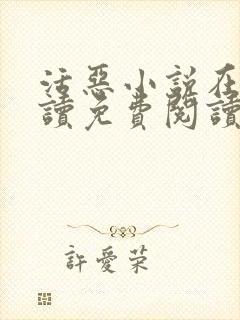 活惡小說在
讀免費閱讀
許愛荣